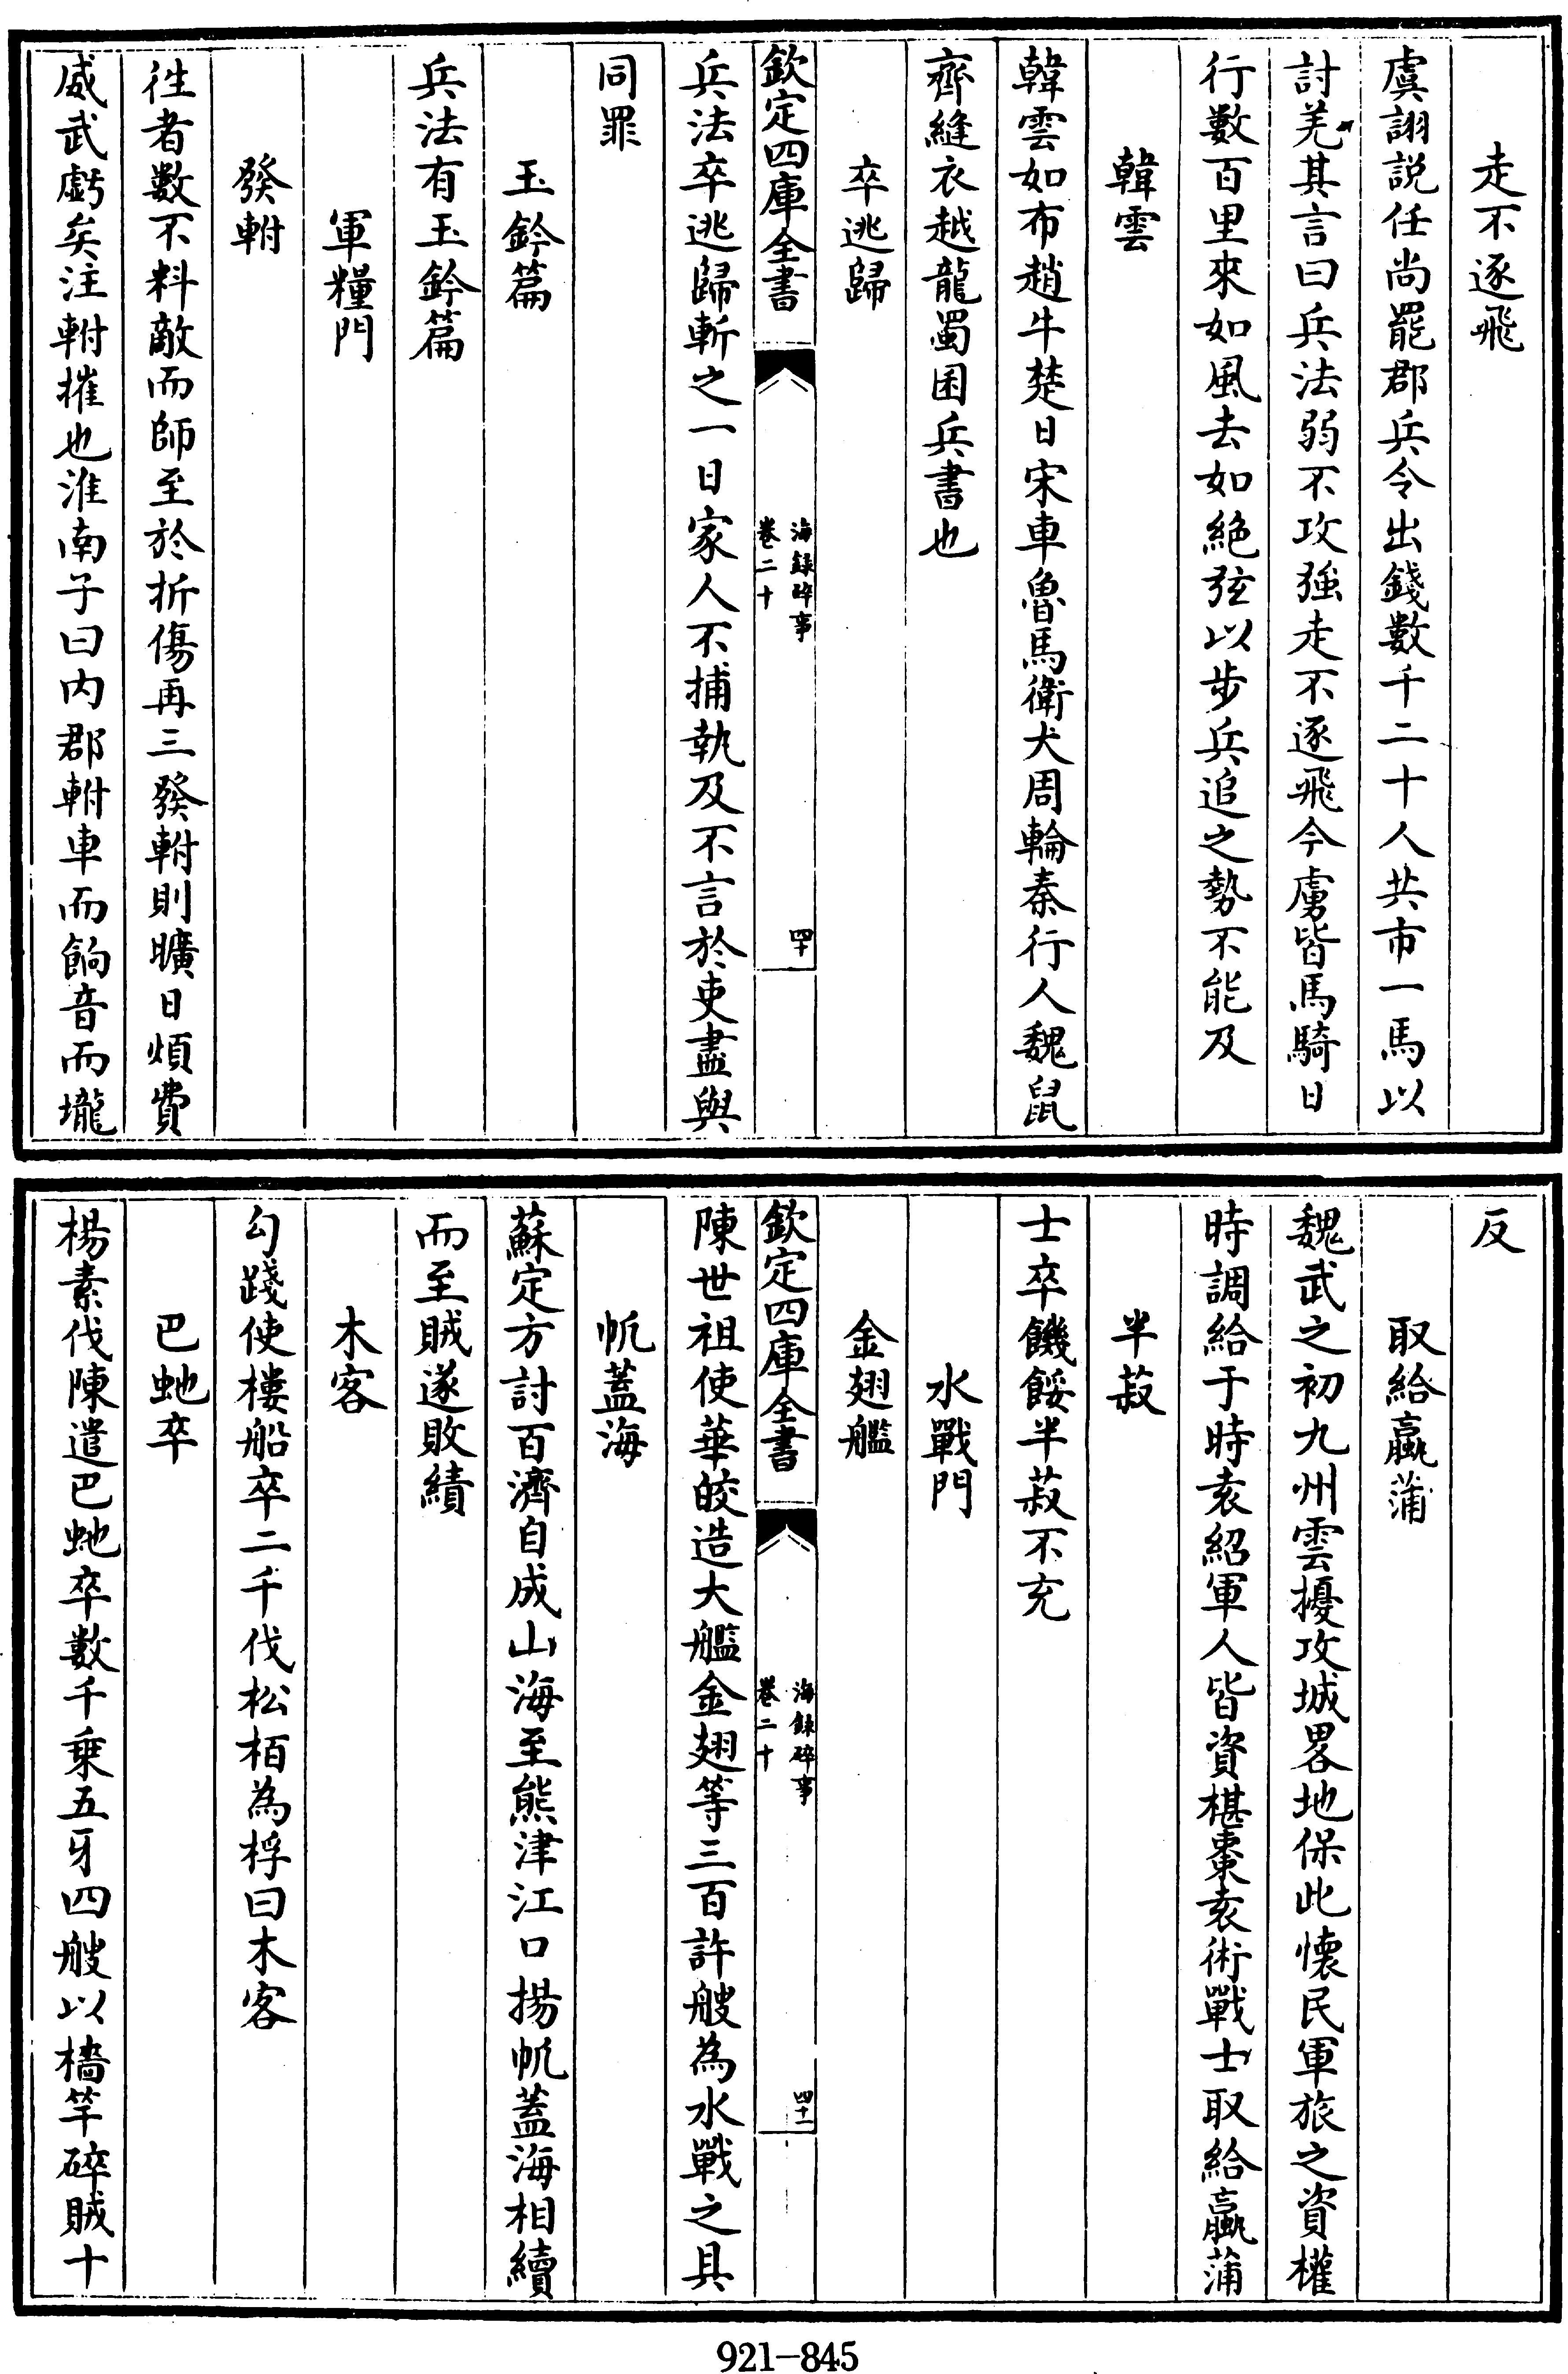 走不逐飛
虞詡説任尚罷郡兵令出錢數千二十人共市一馬以
討羌其言曰兵法弱不攻強走不逐飛今虜皆馬騎日
行數百里來如風去如絶弦以步兵追之勢不能及
韓雲
韓雲如布趙牛楚日宋車魯馬衛犬周輪秦行人魏鼠
齊縫衣越龍蜀囷兵書也
卒逃歸
欽定四庫全書
海録碎事
卷二十
四十
兵法卒逃歸斬之一日家人不捕執及不言於吏盡與
同罪
玉鈐篇
兵法有玉鈐篇
軍糧門
發軵
徃者數不料敵而師至於折傷再三發軵則曠日煩費
威武虧矣注軵摧也淮南子曰内郡軵車而餉音而壠
反
取給蠃蒲
魏武之初九州雲擾攻城畧地保此懷民軍旅之資權
時調給于時袁紹軍人皆資椹棗袁術戰士取給蠃蒲
半菽
士卒饑餒半菽不充
水戰門
金翅艦
欽定四庫全書
海録碎事
卷二十
四十一
陳世祖使華皎造大艦金翅等三百許艘為水戰之具
帆蓋海
蘇定方討百濟自成山海至熊津江口揚帆蓋海相續
而至賊遂敗績
木客
勾踐使樓船卒二千伐松栢為桴曰木客
巴蚰卒
楊素伐陳遣巴蚰卒數千乗五牙四艘以檣竿碎賊十
921-845